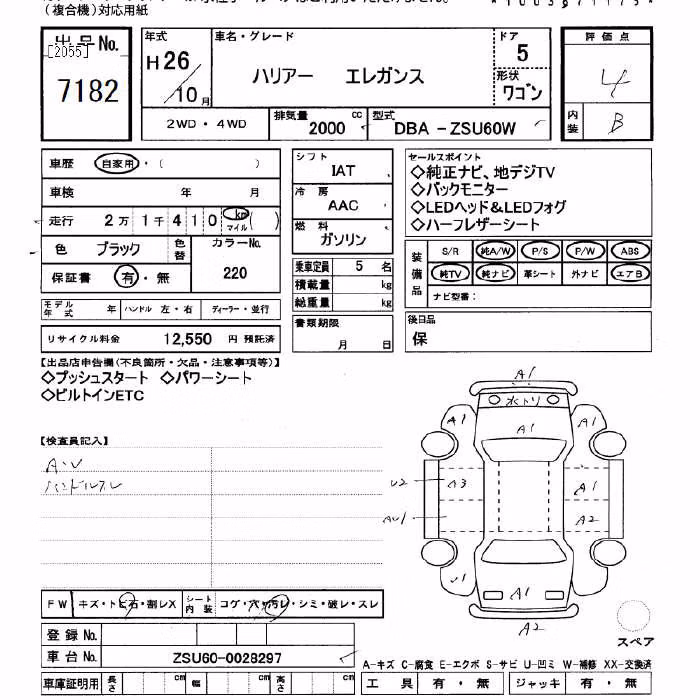 (複合機)対応用紙
出品No. [2055] 7182
年式 H26/10月
車名・グレード ハリアー エレガンス
ドア 5
形状 ワゴン
評価点 4
内装 B
2WD・4WD
排気量 2000 cc
型式 DBA -ZSU60W
車歴 自家用・( )
車検 年 月
走行 2万1千410 km マイル ( )
色 ブラック 色替 カラーNo. 220
保証書 有・無
モデル年式 年 ハンドル 左・右 ディーラー・並行
リサイクル料金 12,550 円 預託済
シフト IAT
冷房 AAC
燃料 ガソリン
乗車定員 5 名
積載量 kg
総重量 kg
書類期限 月 日
セールスポイント
◇純正ナビ、地デジTV
◇バックモニター
◇LEDヘッド&LEDフォグ
◇ハーフレザーシート
装備品 S/R 純A/W P/S P/W ABS
純TV 純ナビ 革シート 外ナビ エアB
ナビ型番:
後日品
保
【出品店申告欄(不良箇所・欠品・注意事項等)】
◇プッシュスタート ◇パワーシート
◇ビルトインETC
【検査員記入】
A・U
ハンドルスレ
A1
水トリ
A1 A1 A1
U2 A3 A1
AU1 A2
U1 A1
A2
スペア
FW キズ・トビ石・割レX シート内装 コゲ・穴・汚レ・シミ・破レ・スレ
登録No.
車台No. ZSU60-0028297
A-キズ C-腐食 E-エクボ S-サビ U-凹ミ W-補修 XX-交換済
車庫証明用 長さ cm 幅 cm 高さ cm
工具 有・無 ジャッキ 有・無